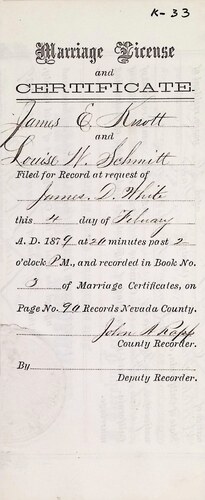 K-33
Marriage License
and
CERTIFICATE.
James E. Knott
and
Louise W. Schmitt
Filed for Record at request of
James. D. White
this 4 day of Febuary
A. D. 1879 at 20 minutes past 2
o'clock P.M., and recorded in Book No.
3 of Marriage Certificates, on
Page No. 90 Records Nevada County.
John A Rapp
County Recorder.
By
Deputy Recorder.